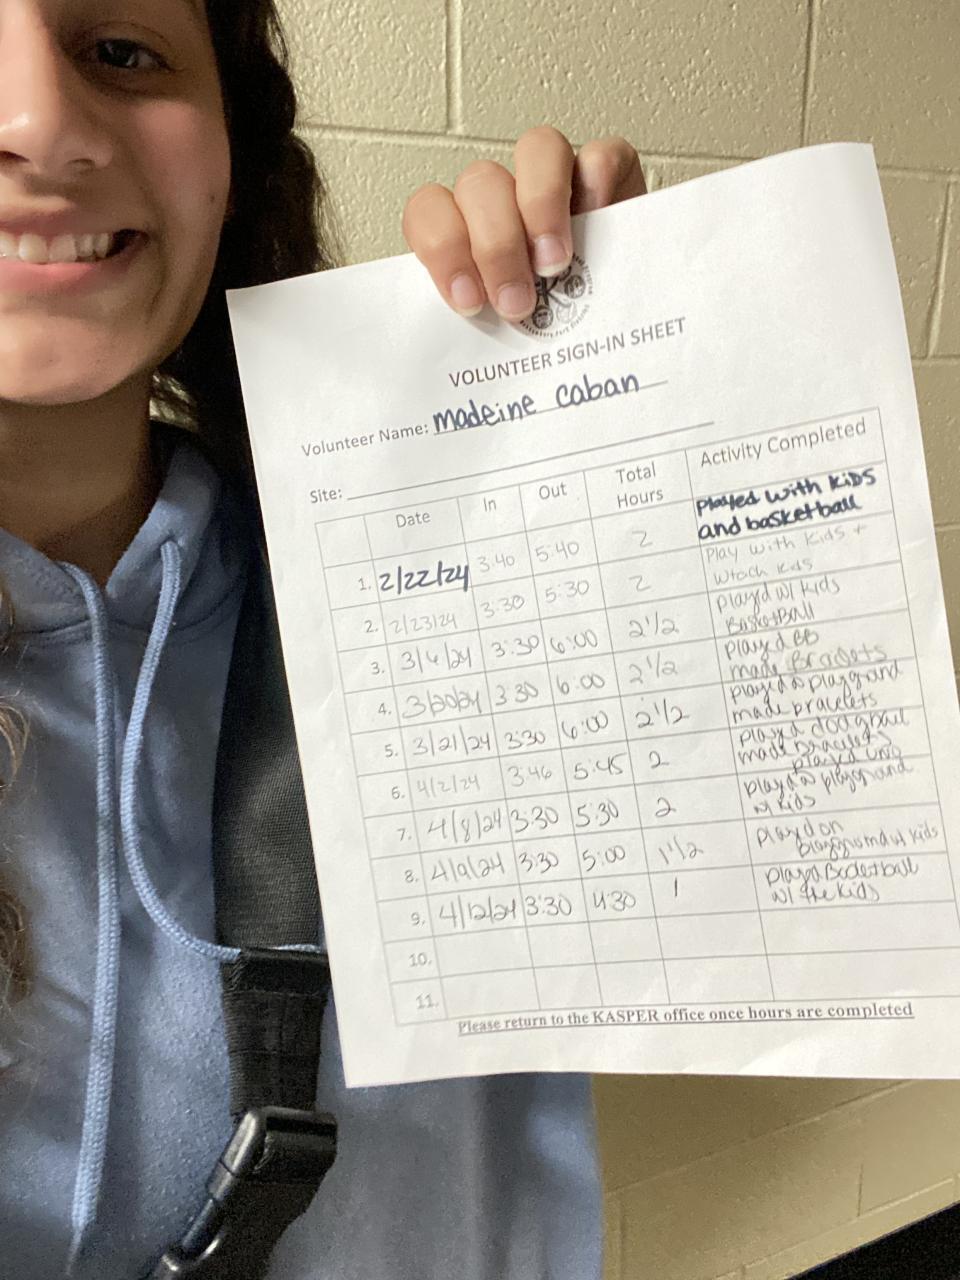 VOLUNTEER SIGN-IN SHEET
Volunteer Name: madeine caban
Site:
Date In Out Total Hours Activity Completed
1. 2/22/24 3:40 5:40 2 played with kids and basketball
2. 2/23/24 3:30 5:30 2 Play with kids + wtach kids
3. 3/6/24 3:30 6:00 2 1/2 playd w/ kids BasketBall
4. 3/20/24 3:30 6:00 2 1/2 playd BB made Braclets
5. 3/21/24 3:30 6:00 2 1/2 playd @ playground made bracelets
6. 4/2/24 3:46 5:45 2 playd dodgball made bracelets played uno
7. 4/8/24 3:30 5:30 2 playd @ playground w/ kids
8. 4/9/24 3:30 5:00 1 1/2 playd on playground w/ kids
9. 4/12/24 3:30 4:30 1 playd Basketball w/ the kids
10.
11.
Please return to the KASPER office once hours are completed